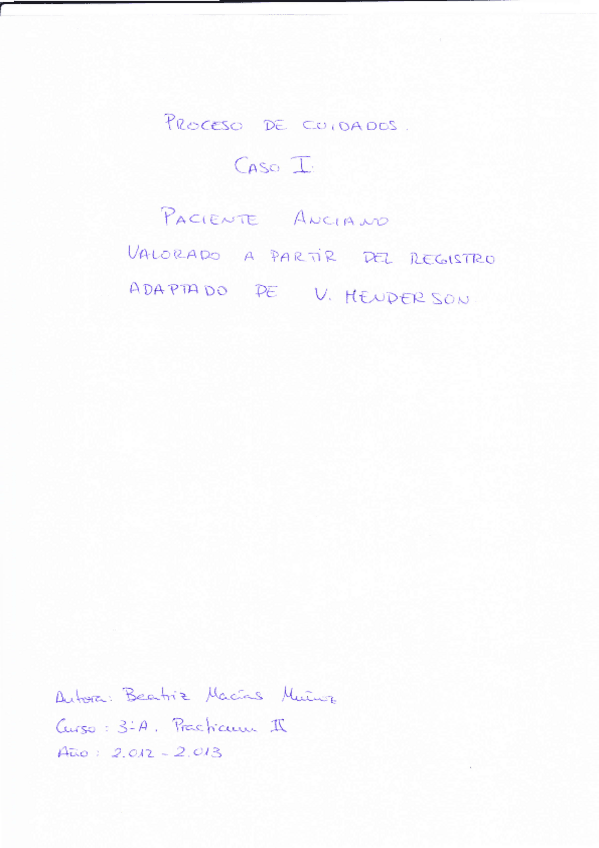 PROCESO DE CUIDADOS.
CASO I.
PACIENTE ANCIANO
VALORADO A PARTIR DEL REGISTRO
ADAPTADO DE V. HENDERSON
Autora: Beatriz Macías Muñoz
Curso: 3ºA. Practicum II
Año: 2.012 - 2.013